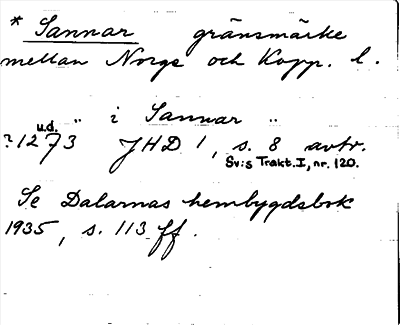 * Sannar gränsmärke
mellan Norge och Kopp. l.
" i Sannar "
u.d.
?1273 JHD 1, s. 8 avtr.
Sv:s Trakt. I, nr. 120.
Se Dalarnas hembygdsbok
1935, s. 113 ff.